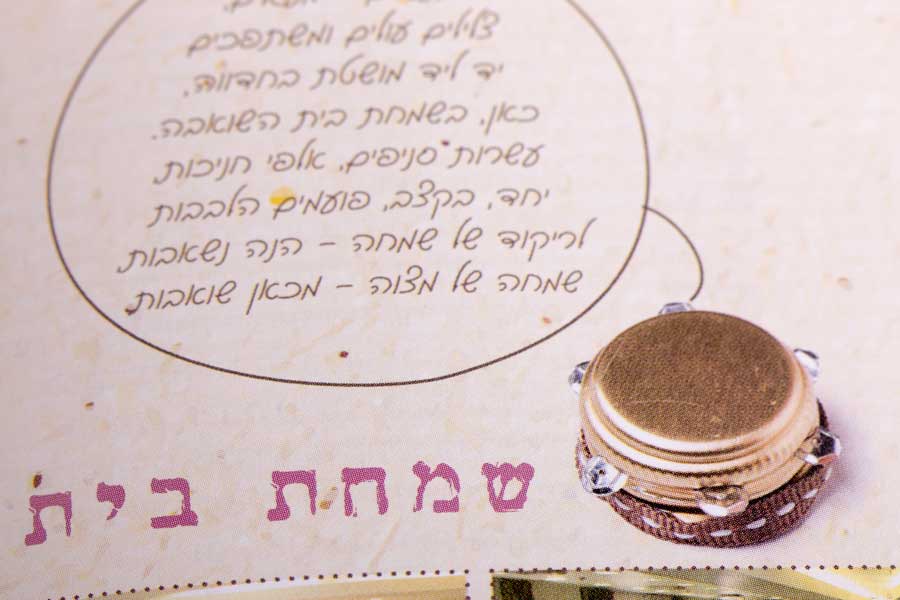 צלילים עולים ומשתפכים
יד ליד מושטת בחדווה,
כאן, בשמחת בית השואבה.
עשרות סניפים, אלפי חניכות
יחד, בקצב, פועמים הלבבות
לריקוד של שמחה – הנה נשאבות
שמחה של מצוה – מכאן שואבות
שמחת בית